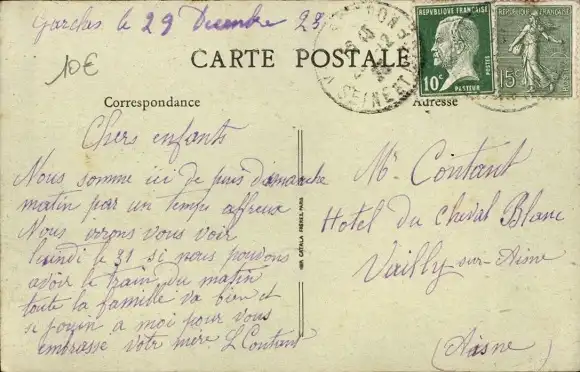 Garches le 29 Decembre 23
10€
CARTE POSTALE
Correspondance
Adresse
REPUBLIQUE FRANÇAISE
10c
POSTES
PASTEUR
REPUBLIQUE FRANÇAISE
15c
Chers enfants
Nous somme ici de puis dimanche
matin par un temps affreux
Nous irons vous voir
lundi le 31 si nous pouvons
avoir le train du matin
toute la famille va bien et
se a moi pour vous
embrasse votre mère L Contant
IMP. CATALA FRÈRES, PARIS
Mr Contant
Hotel du Cheval Blanc
Vailly sur-Aisne
(Aisne)